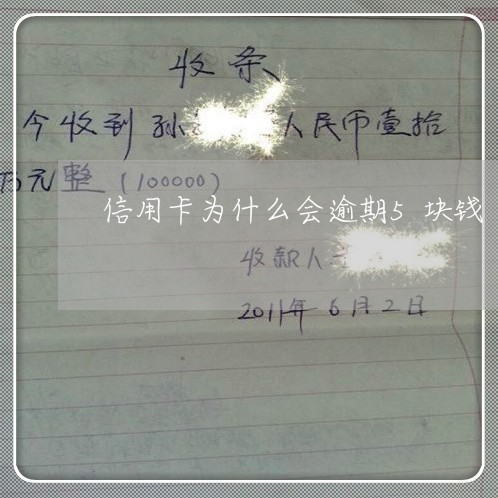 收条
今收到孙 人民币壹拾
万元整(100000)
信用卡为什么会逾期5块钱
收款人
2011年6月2日